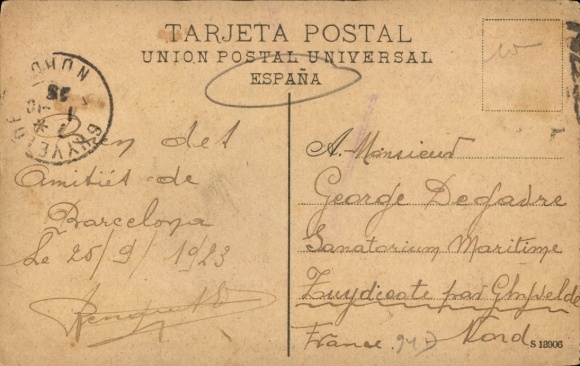 TARJETA POSTAL
UNION POSTAL UNIVERSAL
ESPAÑA
NORD
des
Amitiés de
Barcelona
Le 25/9/1923
A. Monsieur
George Degavre
Sanatorium Maritime
Zuydcoote par Ghyvelde
France. Nord
S 18906